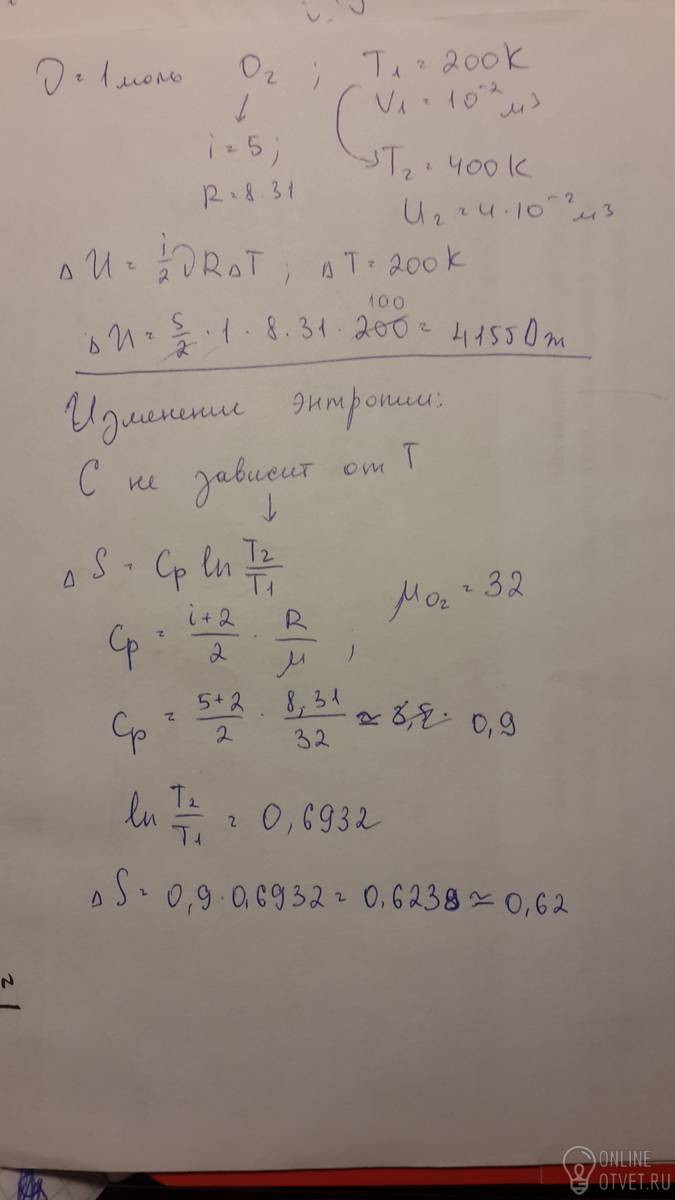 ν = 1 моль O₂ ; T₁ = 200 K
V₁ = 10⁻² м3
i = 5 ;
R = 8.31
T₂ = 400 K
U₂ = 4 · 10⁻² м3
Δ U = i/2 ν R Δ T ; Δ T = 200 K
100
Δ U = 5/2 · 1 · 8.31 · 200 = 4155 Дж
Изменение энтропии:
C не зависит от T
Δ S = Cp ln T₂/T₁
μO₂ = 32
Cp = i+2/2 · R/μ ;
Cp = 5+2/2 · 8,31/32 ≈ 0,9
ln T₂/T₁ = 0,6932
Δ S = 0,9 · 0,6932 = 0,6238 ≈ 0,62
ONLINE
OTVET.RU